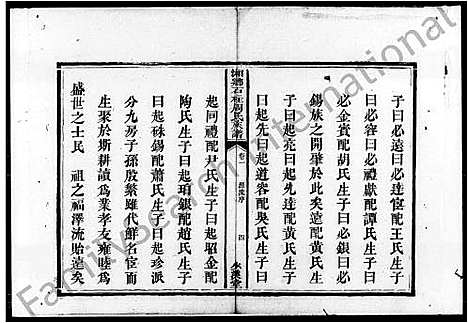 子曰必遠曰必達宦配王氏生子曰
必容曰必禮獻配譚氏生子曰
必金賓配胡氏生子曰必銀曰必
錫族之開肇於此矣遠配黃氏生
子曰起與曰起先達配黃氏生子
曰起先曰起道容配吳氏生子曰
湘鄉石柱周氏族譜
卷一
源流序
四
起同禮配尹氏生子曰起昭金配
陶氏生子曰起瑣銀配趙氏生子
曰起硃錫配蕭氏生子曰起珍派
分九房子孫殷繁雖代鮮名宦而
生聚於斯耕讀為業孝友睦婣為
盛世之士民
祖之福澤流貽遠矣
FamilySearch International